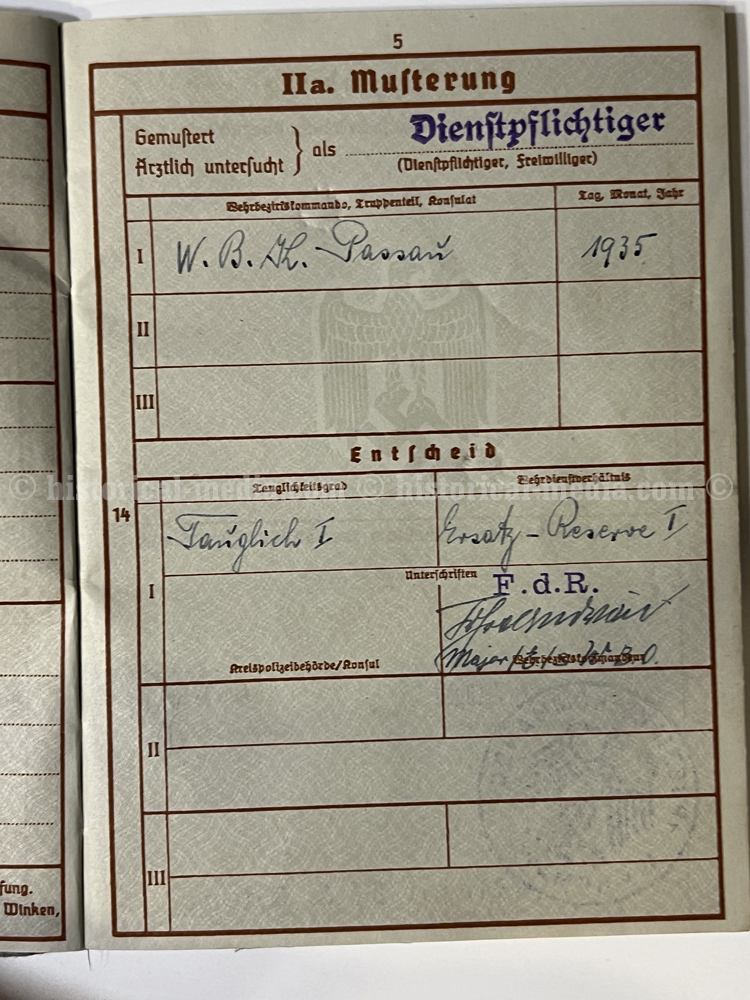 5
IIa. Musterung
Gemustert
Ärztlich untersucht } als Dienstpflichtiger
(Dienstpflichtiger, Freiwilliger)
Wehrbezirkskommando, Truppenteil, Konsulat Tag, Monat, Jahr
I W. B. K. Passau 1935
II
III
Entscheid
Tauglichkeitsgrad Wehrdienstverhältnis
© historical-media.com © historical-media.com ©
14
Tauglich I Ersatz-Reserve I
Unterschriften F.d.R.
I
Major
Kreispolizeibehörde/Konsul Wehrbezirkskommandeur
II
III
fung.
Winken,